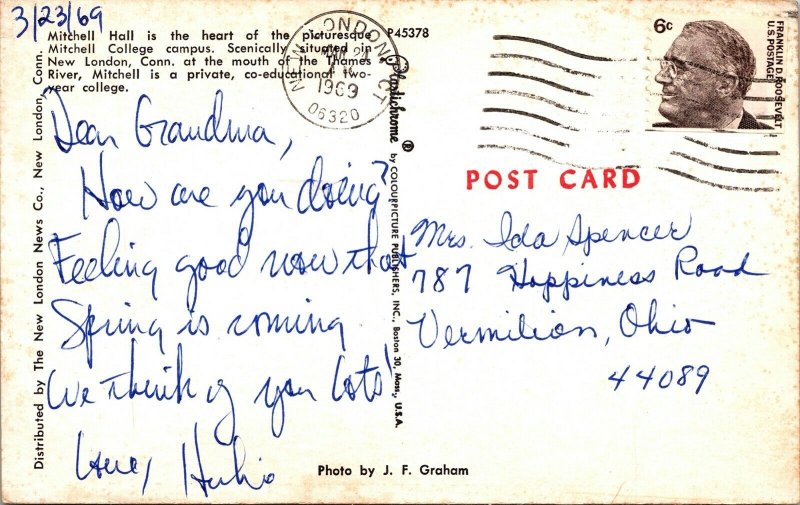 3/23/69
Mitchell Hall is the heart of the picturesque
Mitchell College campus. Scenically situated in
New London, Conn. at the mouth of the Thames
River, Mitchell is a private, co-educational two-
year college.
P45378
NEW LONDON, CT
1969
06320
6c
FRANKLIN D. ROOSEVELT
U.S. POSTAGE
POST CARD
Dear Grandma,
How are you doing?
Feeling good now that
Spring is coming
We think of you lots!
Love,
Mrs. Ida Spencer
787 Happiness Road
Vermilion, Ohio
44089
Distributed by The New London News Co., New London, Conn.
Plastichrome ® by COLOURPICTURE PUBLISHERS, INC., Boston 30, Mass., U.S.A.
Photo by J. F. Graham